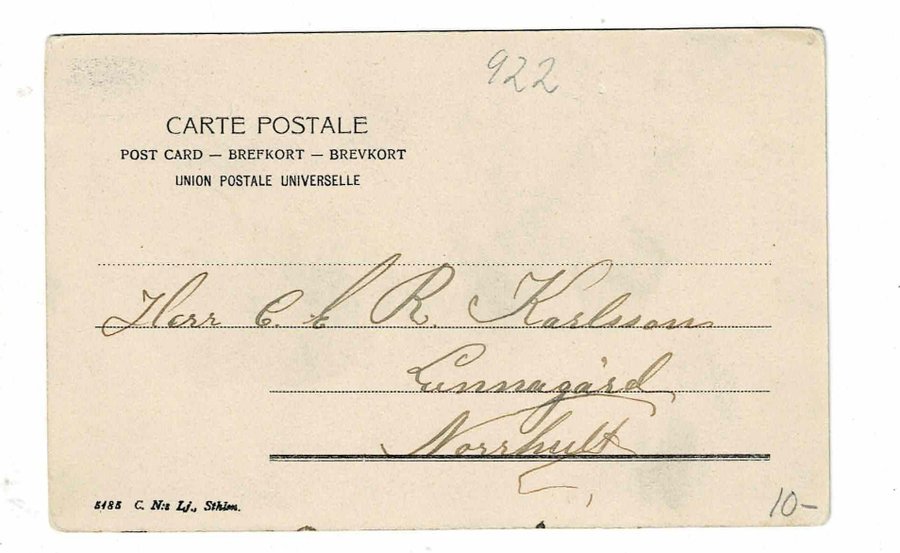 922
CARTE POSTALE
POST CARD — BREFKORT — BREVKORT
UNION POSTALE UNIVERSELLE
Herr C. E R. Karlsson
Lunnagård
Norrhult
5185 C. N:s Lj., Sthlm.
10-